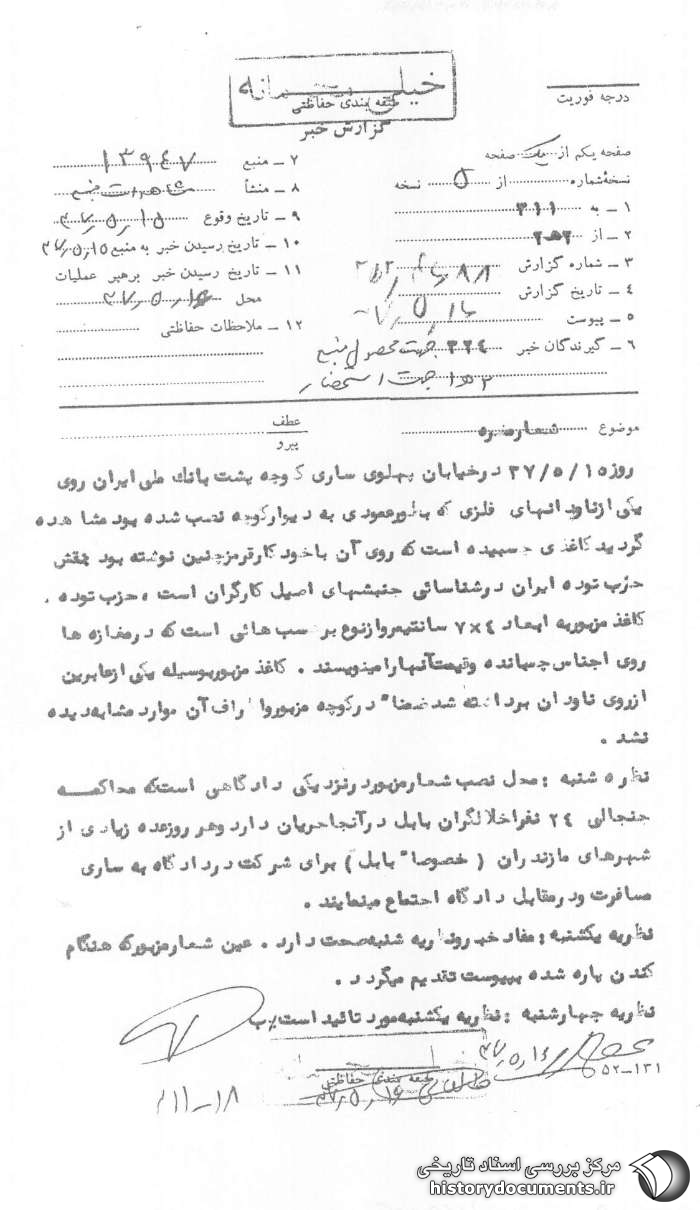 خیلی محرمانه
طبقه بندی حفاظتی
گزارش خبر
درجه فوریت
صفحه یکم از یک صفحه
نسخهٔ شماره از ۵ نسخه
۱ – به ۳۱۱
۲ – از
۳ – شماره گزارش
۴ – تاریخ گزارش
۵ – پیوست
۶ – گیرندگان خبر ۳۲۴ جهت محصول منبع
جهت استحضار
۷ – منبع ۱۳۹۴۷
۸ – منشأ مشاهدات منبع
۹ – تاریخ وقوع ۳۷٫۵٫۱۵
۱۰ – تاریخ رسیدن خبر به منبع ۳۷٫۵٫۱۵
۱۱ – تاریخ رسیدن خبر برهبر عملیات
محل
۱۲ – ملاحظات حفاظتی
موضوع شعار مضره
عطف
پیرو
روز ۳۷/۵/۱۵ در خیابان پهلوی ساری کوچه پشت بانک ملی ایران روی
یکی از ناودانهای فلزی که بطور عمودی به دیوار کوچه نصب شده بود مشاهده
گردید کاغذی چسبیده است که روی آن با خودکار قرمز چنین نوشته بود بنقش
حزب توده ایران در شناسائی جنبشهای اصیل کارگران است ، حزب توده .
کاغذ مزبور به ابعاد ۴×۷ سانتیمتر و از نوع برچسب هائی است که در مغازه ها
روی اجناس چسبانده و قیمت آنها را مینویسند . کاغذ مزبور بوسیله یکی از عابرین
از روی ناودان برداشته شد ضمناً در کوچه مزبور و اطراف آن موارد مشابه دیده
نشد .
نظریه شنبه : محل نصب شعار مزبور در نزدیکی دادگاهی است که محاکمه
جنجالی ۲۴ نفر اخلالگران بابل در آنجا جریان دارد و هر روز عده زیادی از
شهرهای مازندران ( خصوصاً بابل ) برای شرکت در دادگاه به ساری
مسافرت و در مقابل دادگاه اجتماع مینمایند .
نظریه یکشنبه : مفاد خبر و نظریه شنبه صحت دارد . عین شعار مزبور که هنگام
کندن پاره شده بپیوست تقدیم میگردد .
نظریه چهارشنبه : نظریه یکشنبه مورد تائید است ب
طبقه بندی حفاظتی
۵۲-۱۳۱
۲۱۱-۱۸
مرکز بررسی اسناد تاریخی
historydocuments.ir